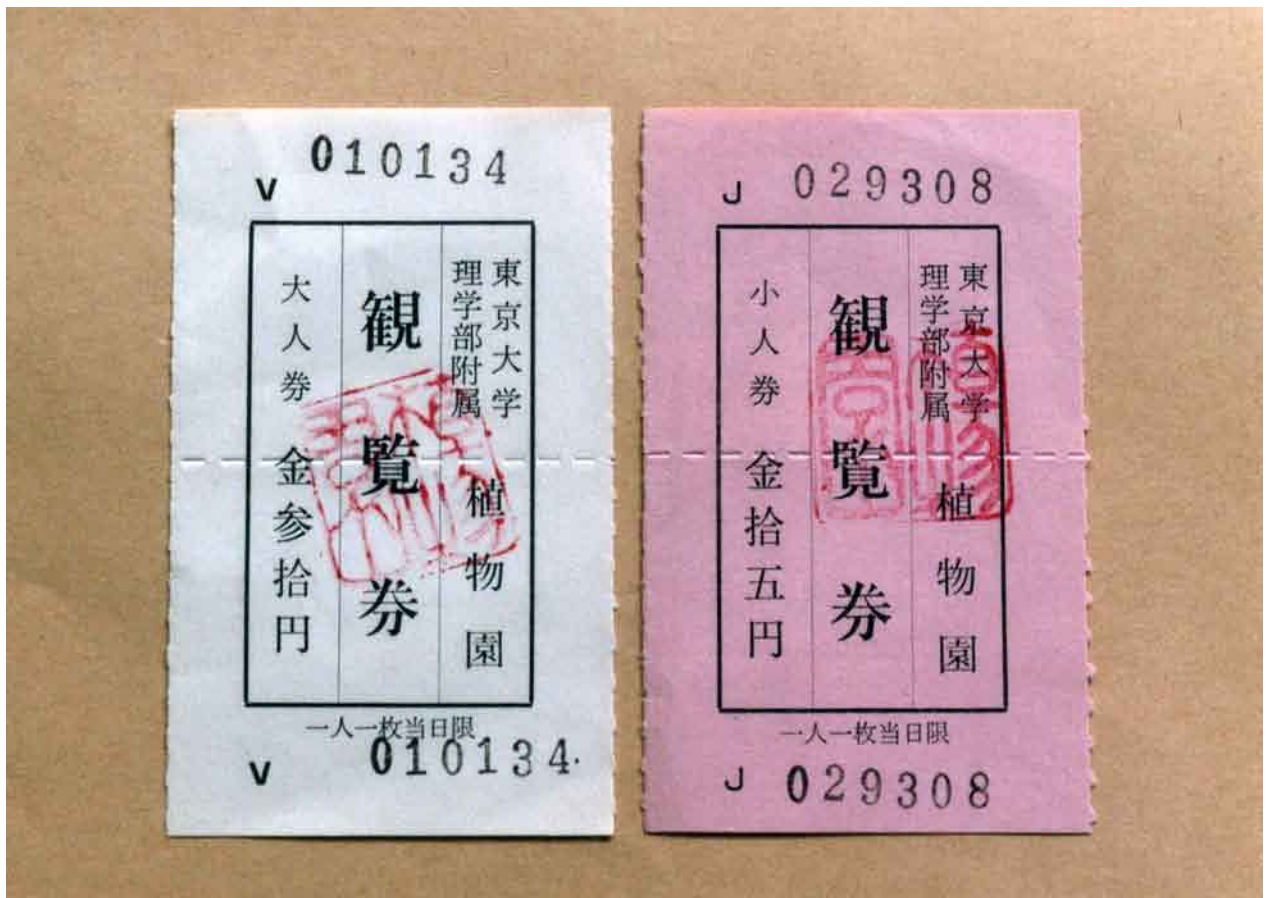 V 010134
東京大学
理学部附属
植物園
観覧券
大人券 金参拾円
一人一枚当日限
V 010134
J 029308
東京大学
理学部附属
植物園
観覧券
小人券 金拾五円
一人一枚当日限
J 029308